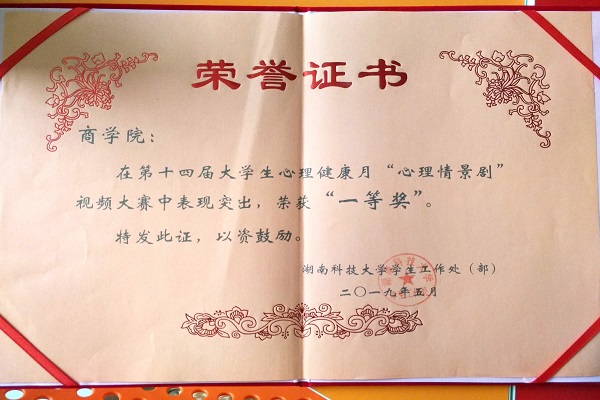 荣誉证书
商学院：
在第十四届大学生心理健康月“心理情景剧”
视频大赛中表现突出，荣获“一等奖”。
特发此证，以资鼓励。
湖南科技大学学生工作处（部）
二〇一九年五月